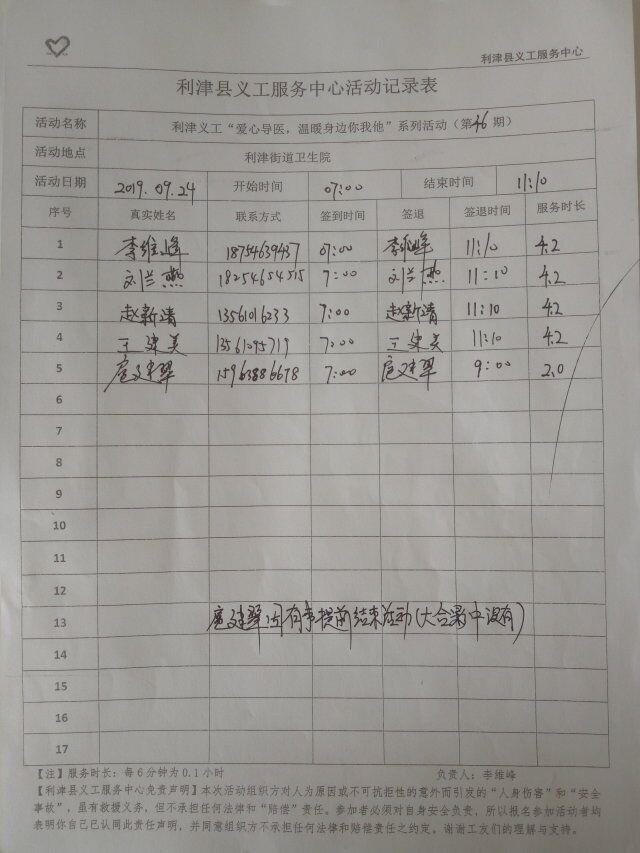 利津县义工服务中心
利津县义工服务中心活动记录表
活动名称 利津义工“爱心导医，温暖身边你我他”系列活动（第36期）
活动地点 利津街道卫生院
活动日期 2019.09.24 开始时间 07:00 结束时间 11:10
序号 真实姓名 联系方式 签到时间 签退 签退时间 服务时长
1 李维峰 18754639437 07:00 李维峰 11:10 4.2
2 刘兰燕 18254654515 7:00 刘兰燕 11:10 4.2
3 赵新清 13561016233 7:00 赵新清 11:10 4.2
4 王建美 13561095719 7:00 王建美 11:10 4.2
5 扈建翠 15963886678 7:00 扈建翠 9:00 2.0
6
7
8
9
10
11
12
13 扈建翠因有事提前结束活动(大合影中没有)
14
15
16
17
【注】服务时长：每6分钟为0.1小时 负责人：李维峰
【利津县义工服务中心免责声明】本次活动组织方对人为原因或不可抗拒性的意外而引发的“人身伤害”和“安全
事故”，虽有救援义务，但不承担任何法律和“赔偿”责任。参加者必须对自身安全负责，所以报名参加活动者均
表明你自己已认同此责任声明，并同意组织方不承担任何法律和赔偿责任之约定。谢谢工友们的理解与支持。